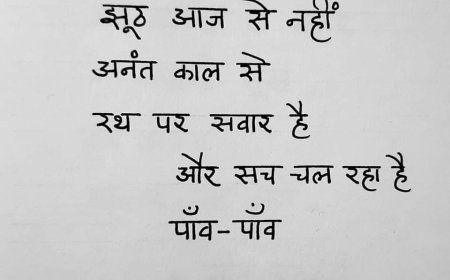 झूठ आज से नहीं
अनंत काल से
रथ पर सवार है
और सच चल रहा है
पाँव-पाँव